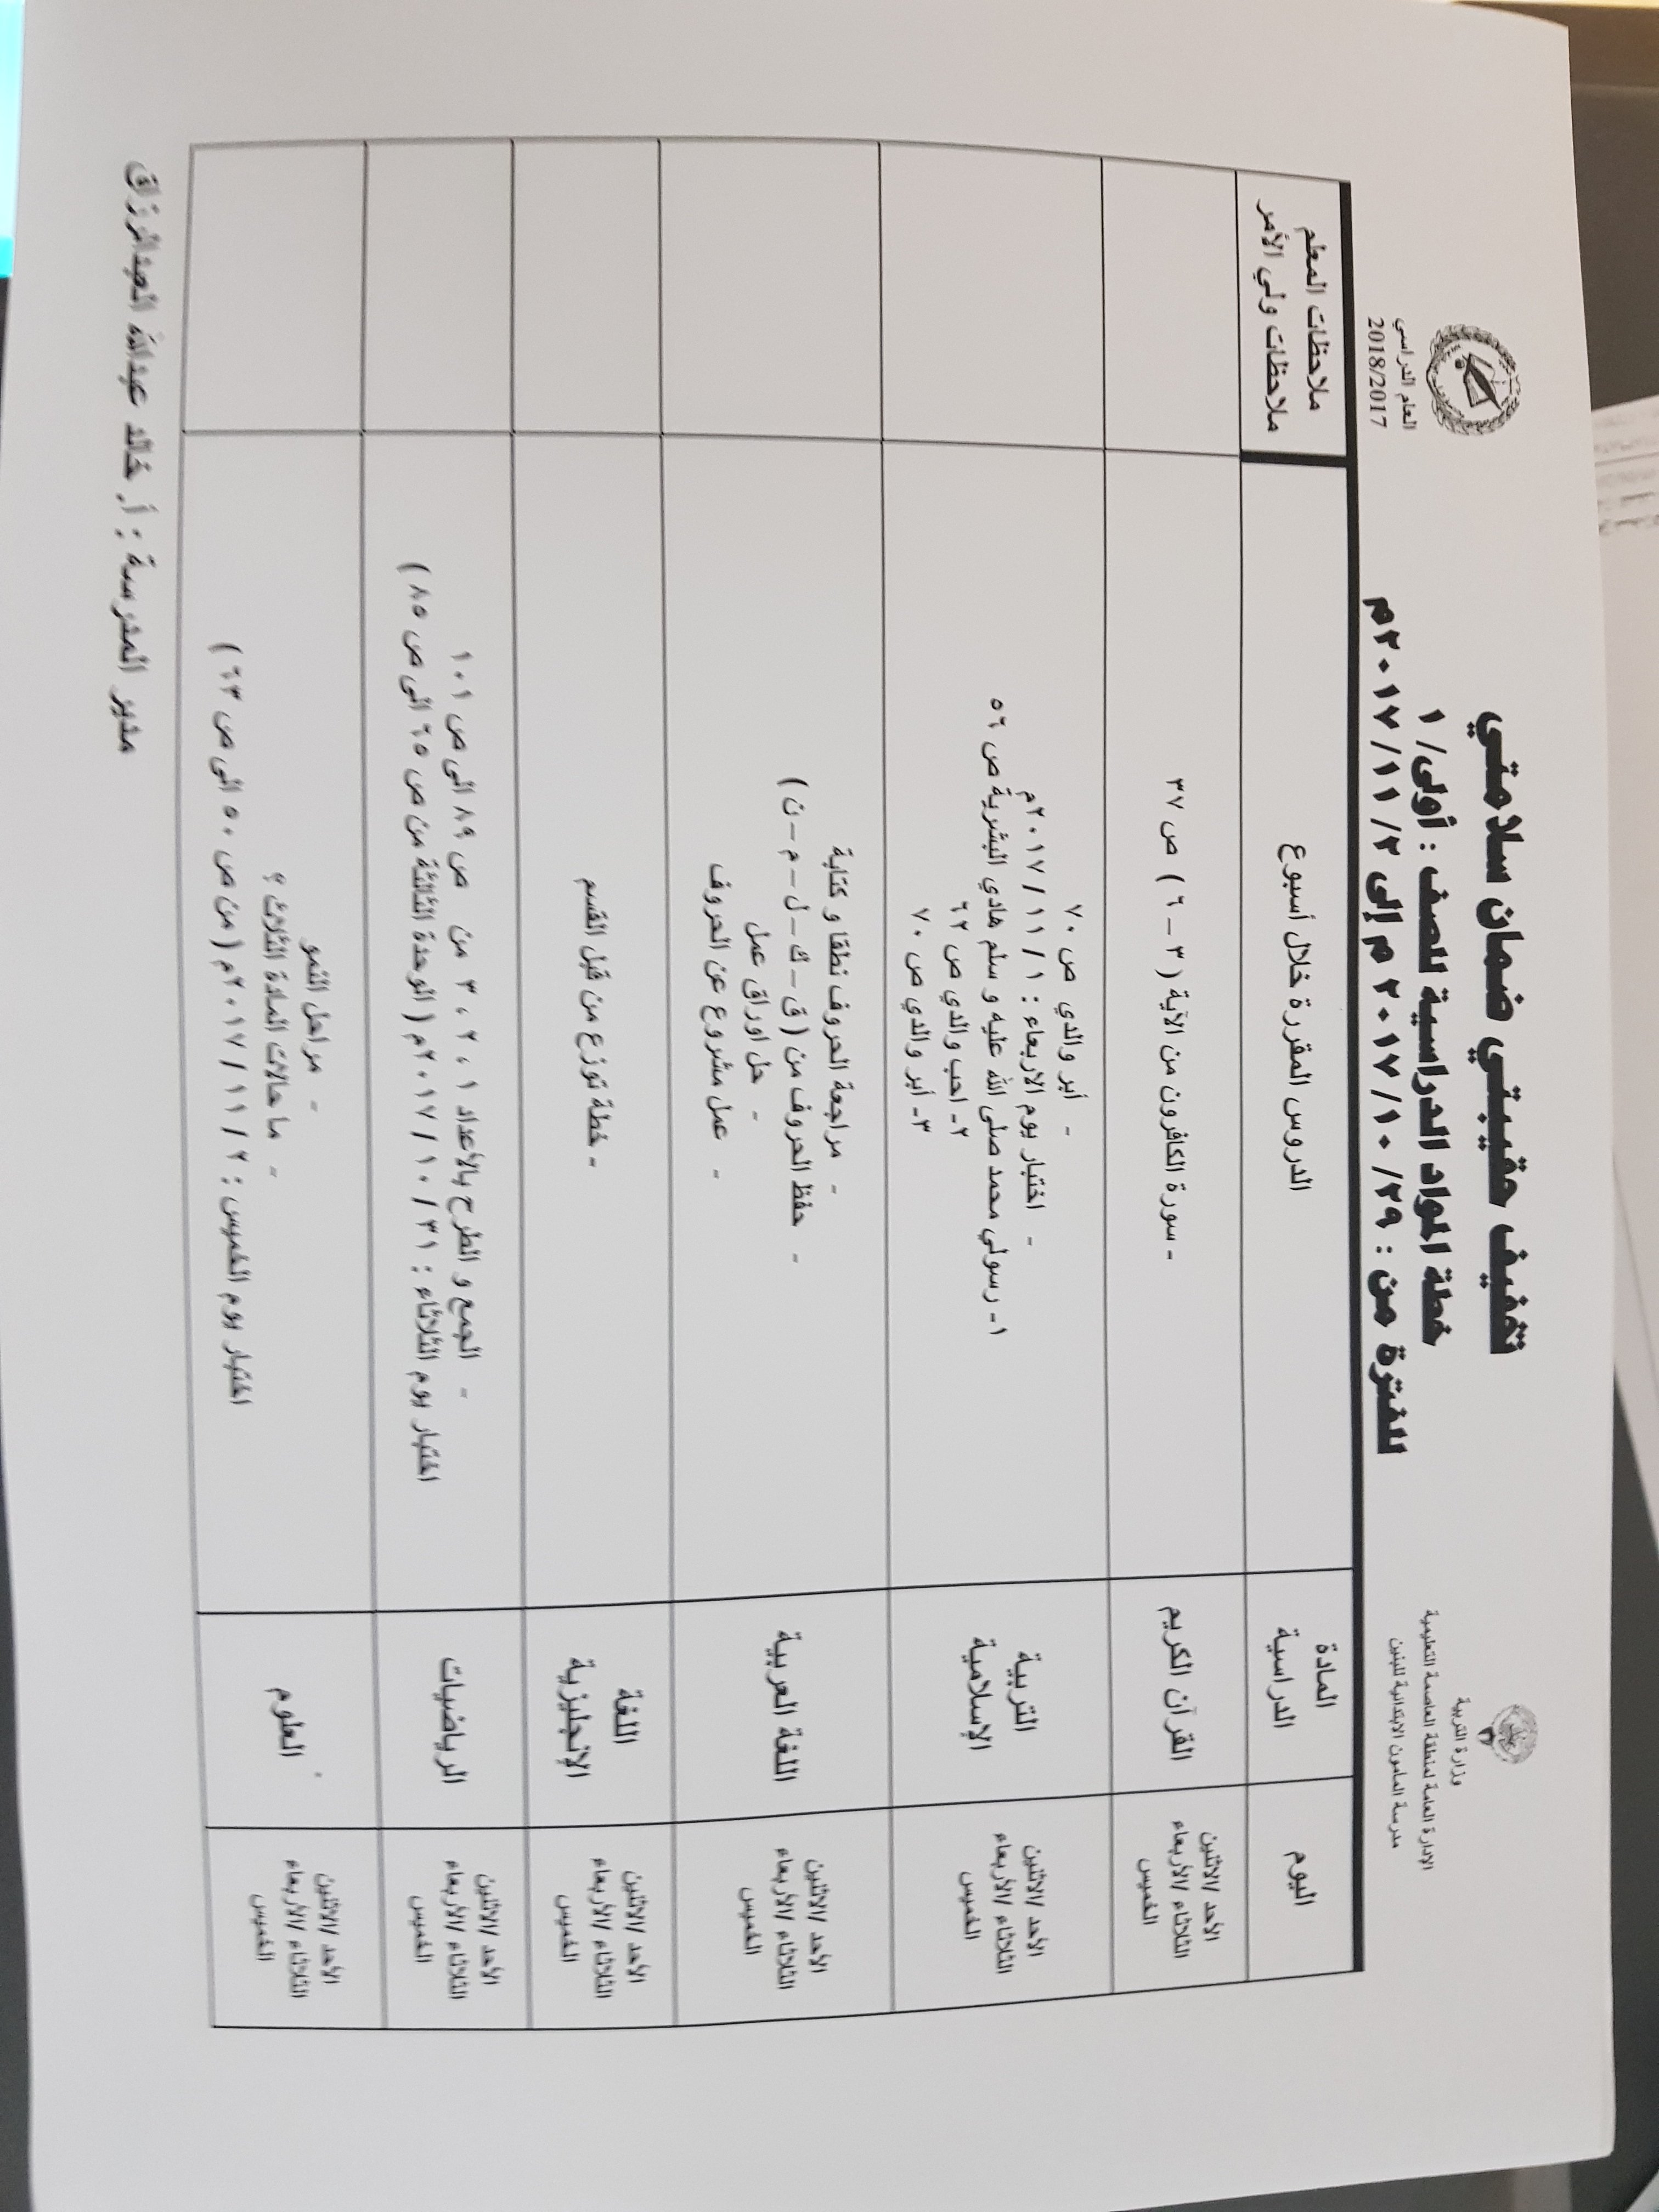 وزارة التربية
الإدارة العامة لمنطقة العاصمة التعليمية
مدرسة المأمون الابتدائية للبنين
تخفيف حقيبتي ضمان سلامتي
خطة المواد الدراسية للصف : أولى/ ١
للفترة من : ٢٩/ ١٠/ ٢٠١٧ م إلى ٢/ ١١/ ٢٠١٧م
العام الدراسي
2018/2017
اليوم
المادة
الدراسية
الدروس المقررة خلال أسبوع
ملاحظات المعلم
ملاحظات ولي الأمر
الأحد /الاثنين
الثلاثاء /الأربعاء
الخميس
القرآن الكريم
- سورة الكافرون من الآية ( ٣ – ٦ ) ص ٣٧
الأحد /الاثنين
الثلاثاء /الأربعاء
الخميس
التربية
الإسلامية
- أبر والدي ص ٧٠
- اختبار يوم الاربعاء : ١ / ١١ / ٢٠١٧م
١- رسولي محمد صلى الله عليه و سلم هادي البشرية ص ٥٦
٢- احب والدي ص ٦٢
٣- أبر والدي ص ٧٠
الأحد /الاثنين
الثلاثاء /الأربعاء
الخميس
اللغة العربية
- مراجعة الحروف نطقا و كتابة
- حفظ الحروف من ( ق – ك – ل – م – ن )
- حل اوراق عمل
- عمل مشروع عن الحروف
الأحد /الاثنين
الثلاثاء /الأربعاء
الخميس
اللغة
الإنجليزية
- خطة توزع من قبل القسم
الأحد /الاثنين
الثلاثاء /الأربعاء
الخميس
الرياضيات
- الجمع و الطرح بالأعداد ١ ، ٢ ، ٣ من ص ٨٩ الى ص ١٠١
اختبار يوم الثلاثاء : ٣١ / ١٠ / ٢٠١٧م ( الوحدة الثالثة من ص ٦٥ الى ص ٨٥ )
الأحد /الاثنين
الثلاثاء /الأربعاء
الخميس
العلوم
- مراحل النمو
- ما حالات المادة الثلاث ؟
اختبار يوم الخميس : ٢ / ١١ / ٢٠١٧م ( من ص ٥٠ الى ص ٦٣ )
مدير المدرسة : أ. خالد عبدالله العبدالرزاق